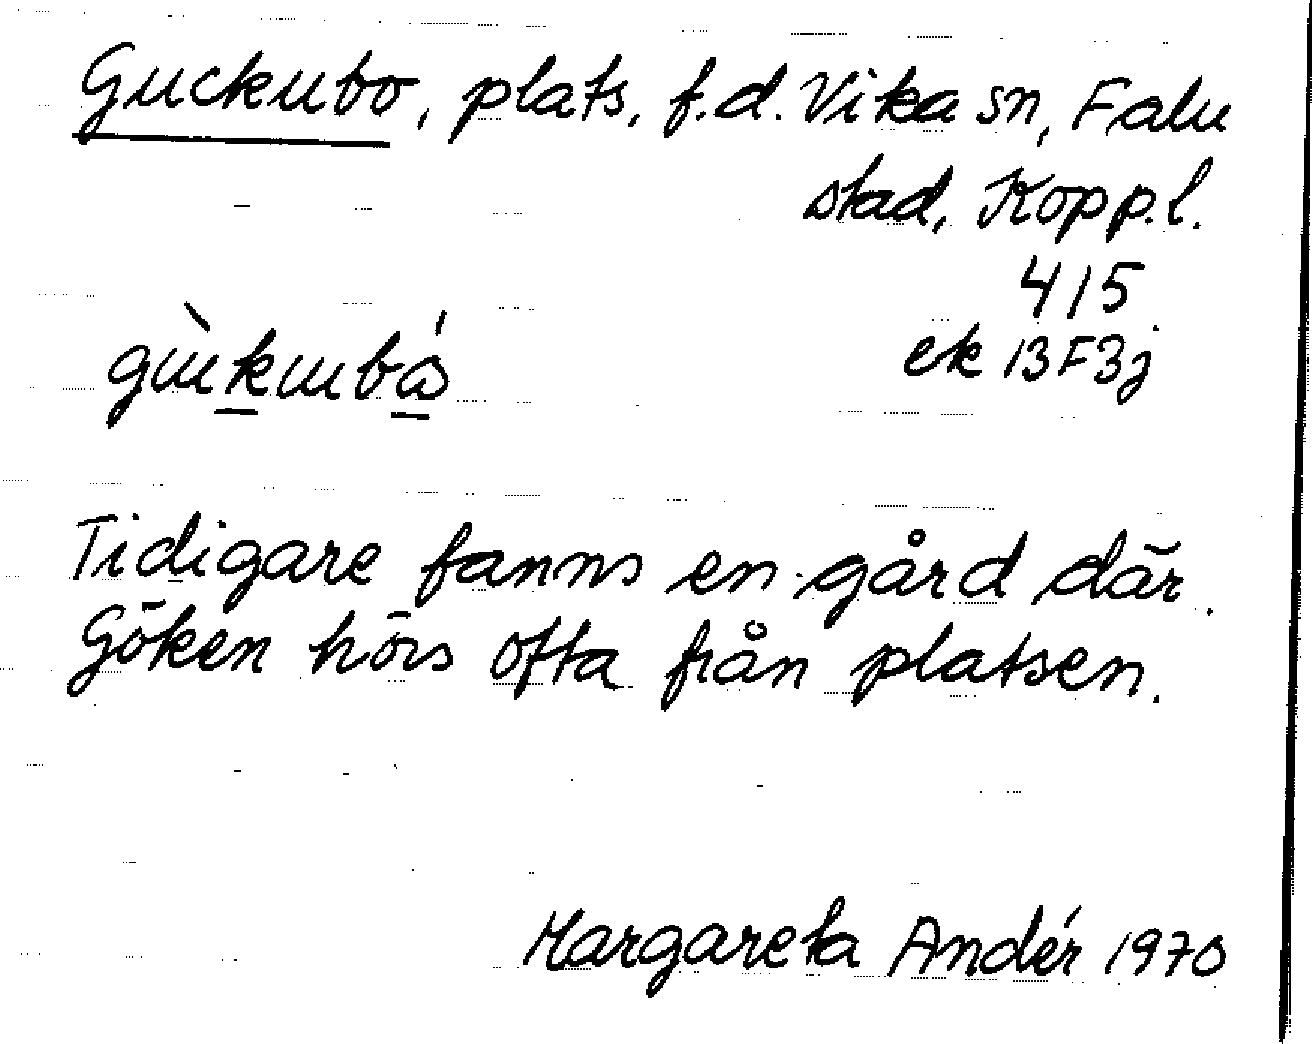 Guckubo, plats, f.d. Vika sn, Falu
stad, Kopp.l.
415
ek 13F3j
Tidigare fanns en gård där.
Göken hörs ofta från platsen.
Margareta Andér 1970